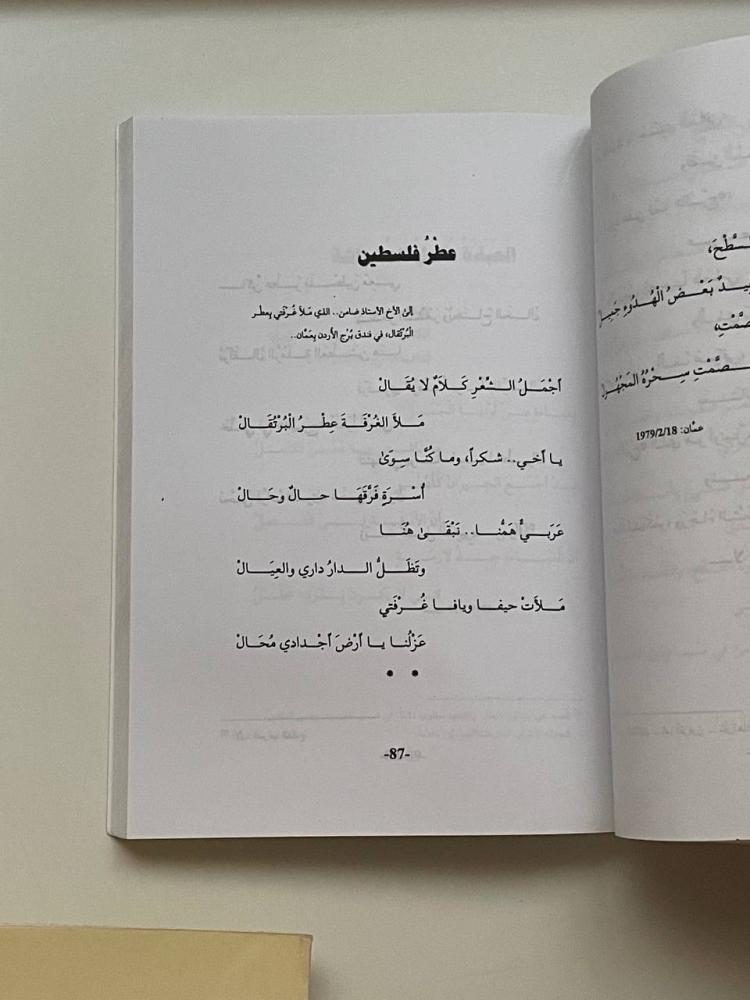 عطْرُ فلسطين
إلى الأخ الأستاذ ضامن.. الذي مَلأ غُرْفَتي بِعطر
الْبُرْتقال، في فندق بُرْج الأردن بِعَمّان..
أجْمَلُ الشِّعْرِ كَلاَمٌ لا يُقَالْ
مَلأَ الغُرْفَةَ عِطْرُ الْبُرْتُقَالْ
يا أخي.. شكراً، وما كُنَّا سِوَىٰ
أُسْرَةٍ فَرَّقَهَا حالٌ وحَالْ
عَرَبيٌّ هَمُّنا.. نَبْقَىٰ هُنَا
وتَظَلُّ الدارُ داري والعِيَالْ
مَلأَتْ حيفا ويافا غُرْفَتي
عَزْلُنا يا أرْضَ أجْدادي مُحَالْ
-87-
السَّطْحَ،
بَعْضُ الْهُدُوءِ
سِحْرُهُ المَجْهُولْ
عمّان: 1979/2/18